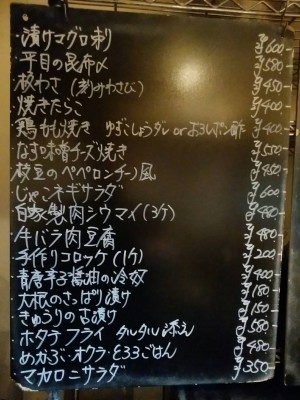 漬けマグロ刺 ¥600-
平目の昆布〆 ¥580
板わさ (刻みわさび) ¥450
焼きたらこ ¥400
鶏もも焼き ゆずこしょうダレ or おろしポン酢 ¥400
なす味噌チーズ焼き ¥550
枝豆のペペロンチーノ風 ¥450
じゃこネギサラダ ¥600
自家製肉シウマイ(3ケ)
牛バラ肉豆腐 ¥480
手作りコロッケ(1ケ) ¥200
青唐辛子醤油の冷奴 ¥400
大根のさっぱり漬け ¥180
きゅうりの古漬け ¥150
ホタテフライ タルタル添え ¥580
めかぶ・オクラ・とろろごはん ¥480-
マカロニサラダ ¥350-